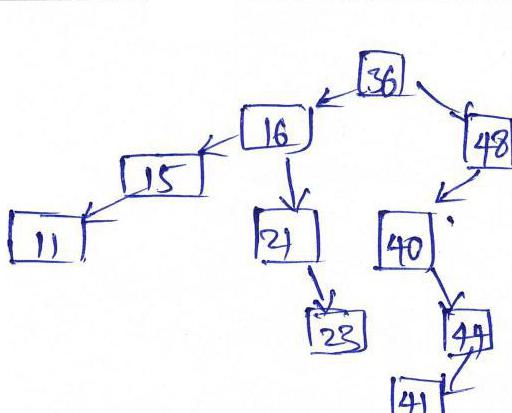 36
16
48
15
11
21
40
23
44
41